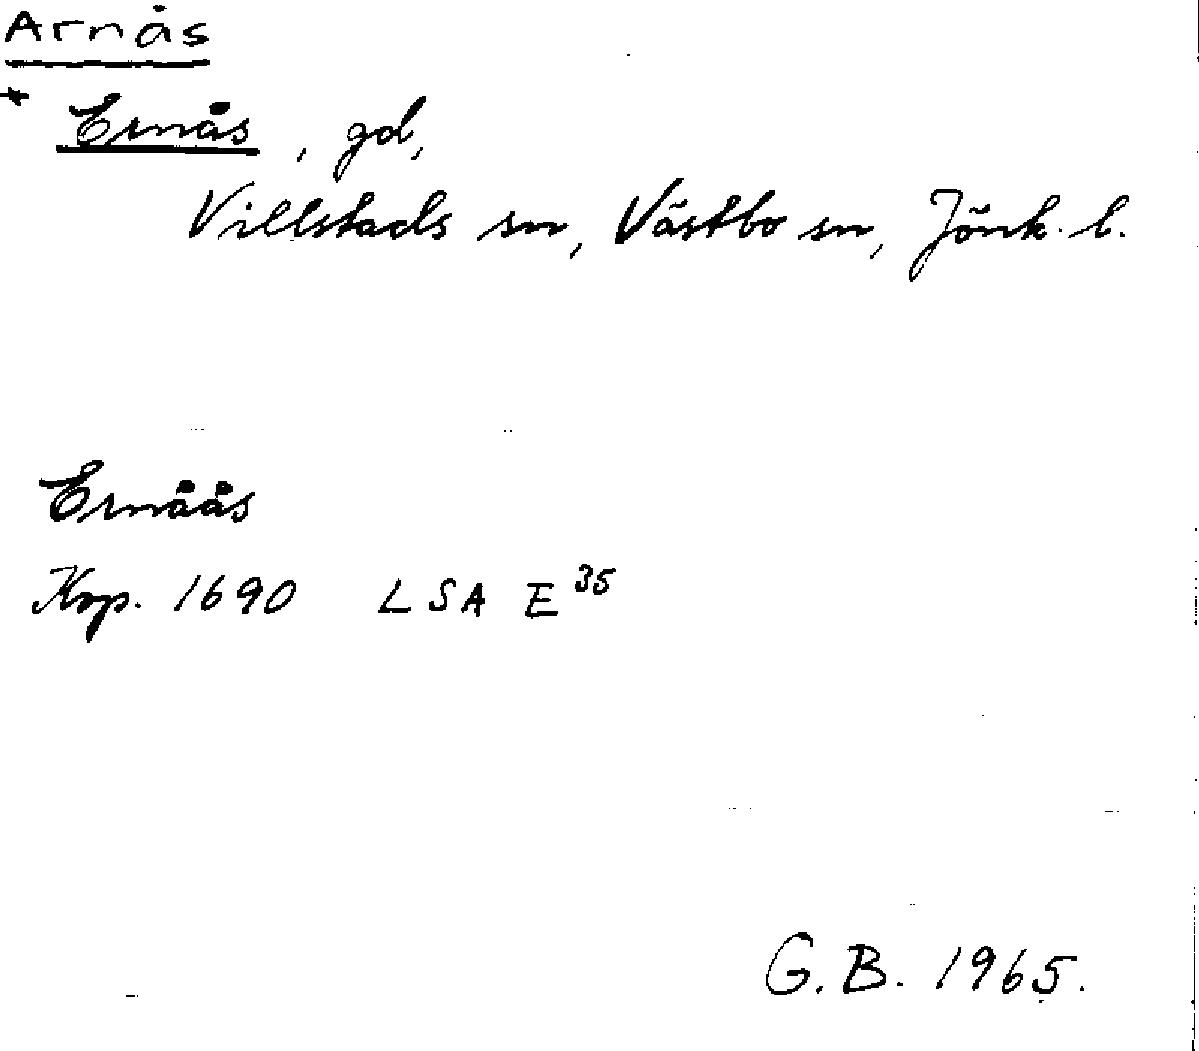 Arnås
* Ernås, gd,
Villstads sn, Västbo sn, Jönk. l.
Ernåås
Kop. 1690 LSA E 35
G.B. 1965.